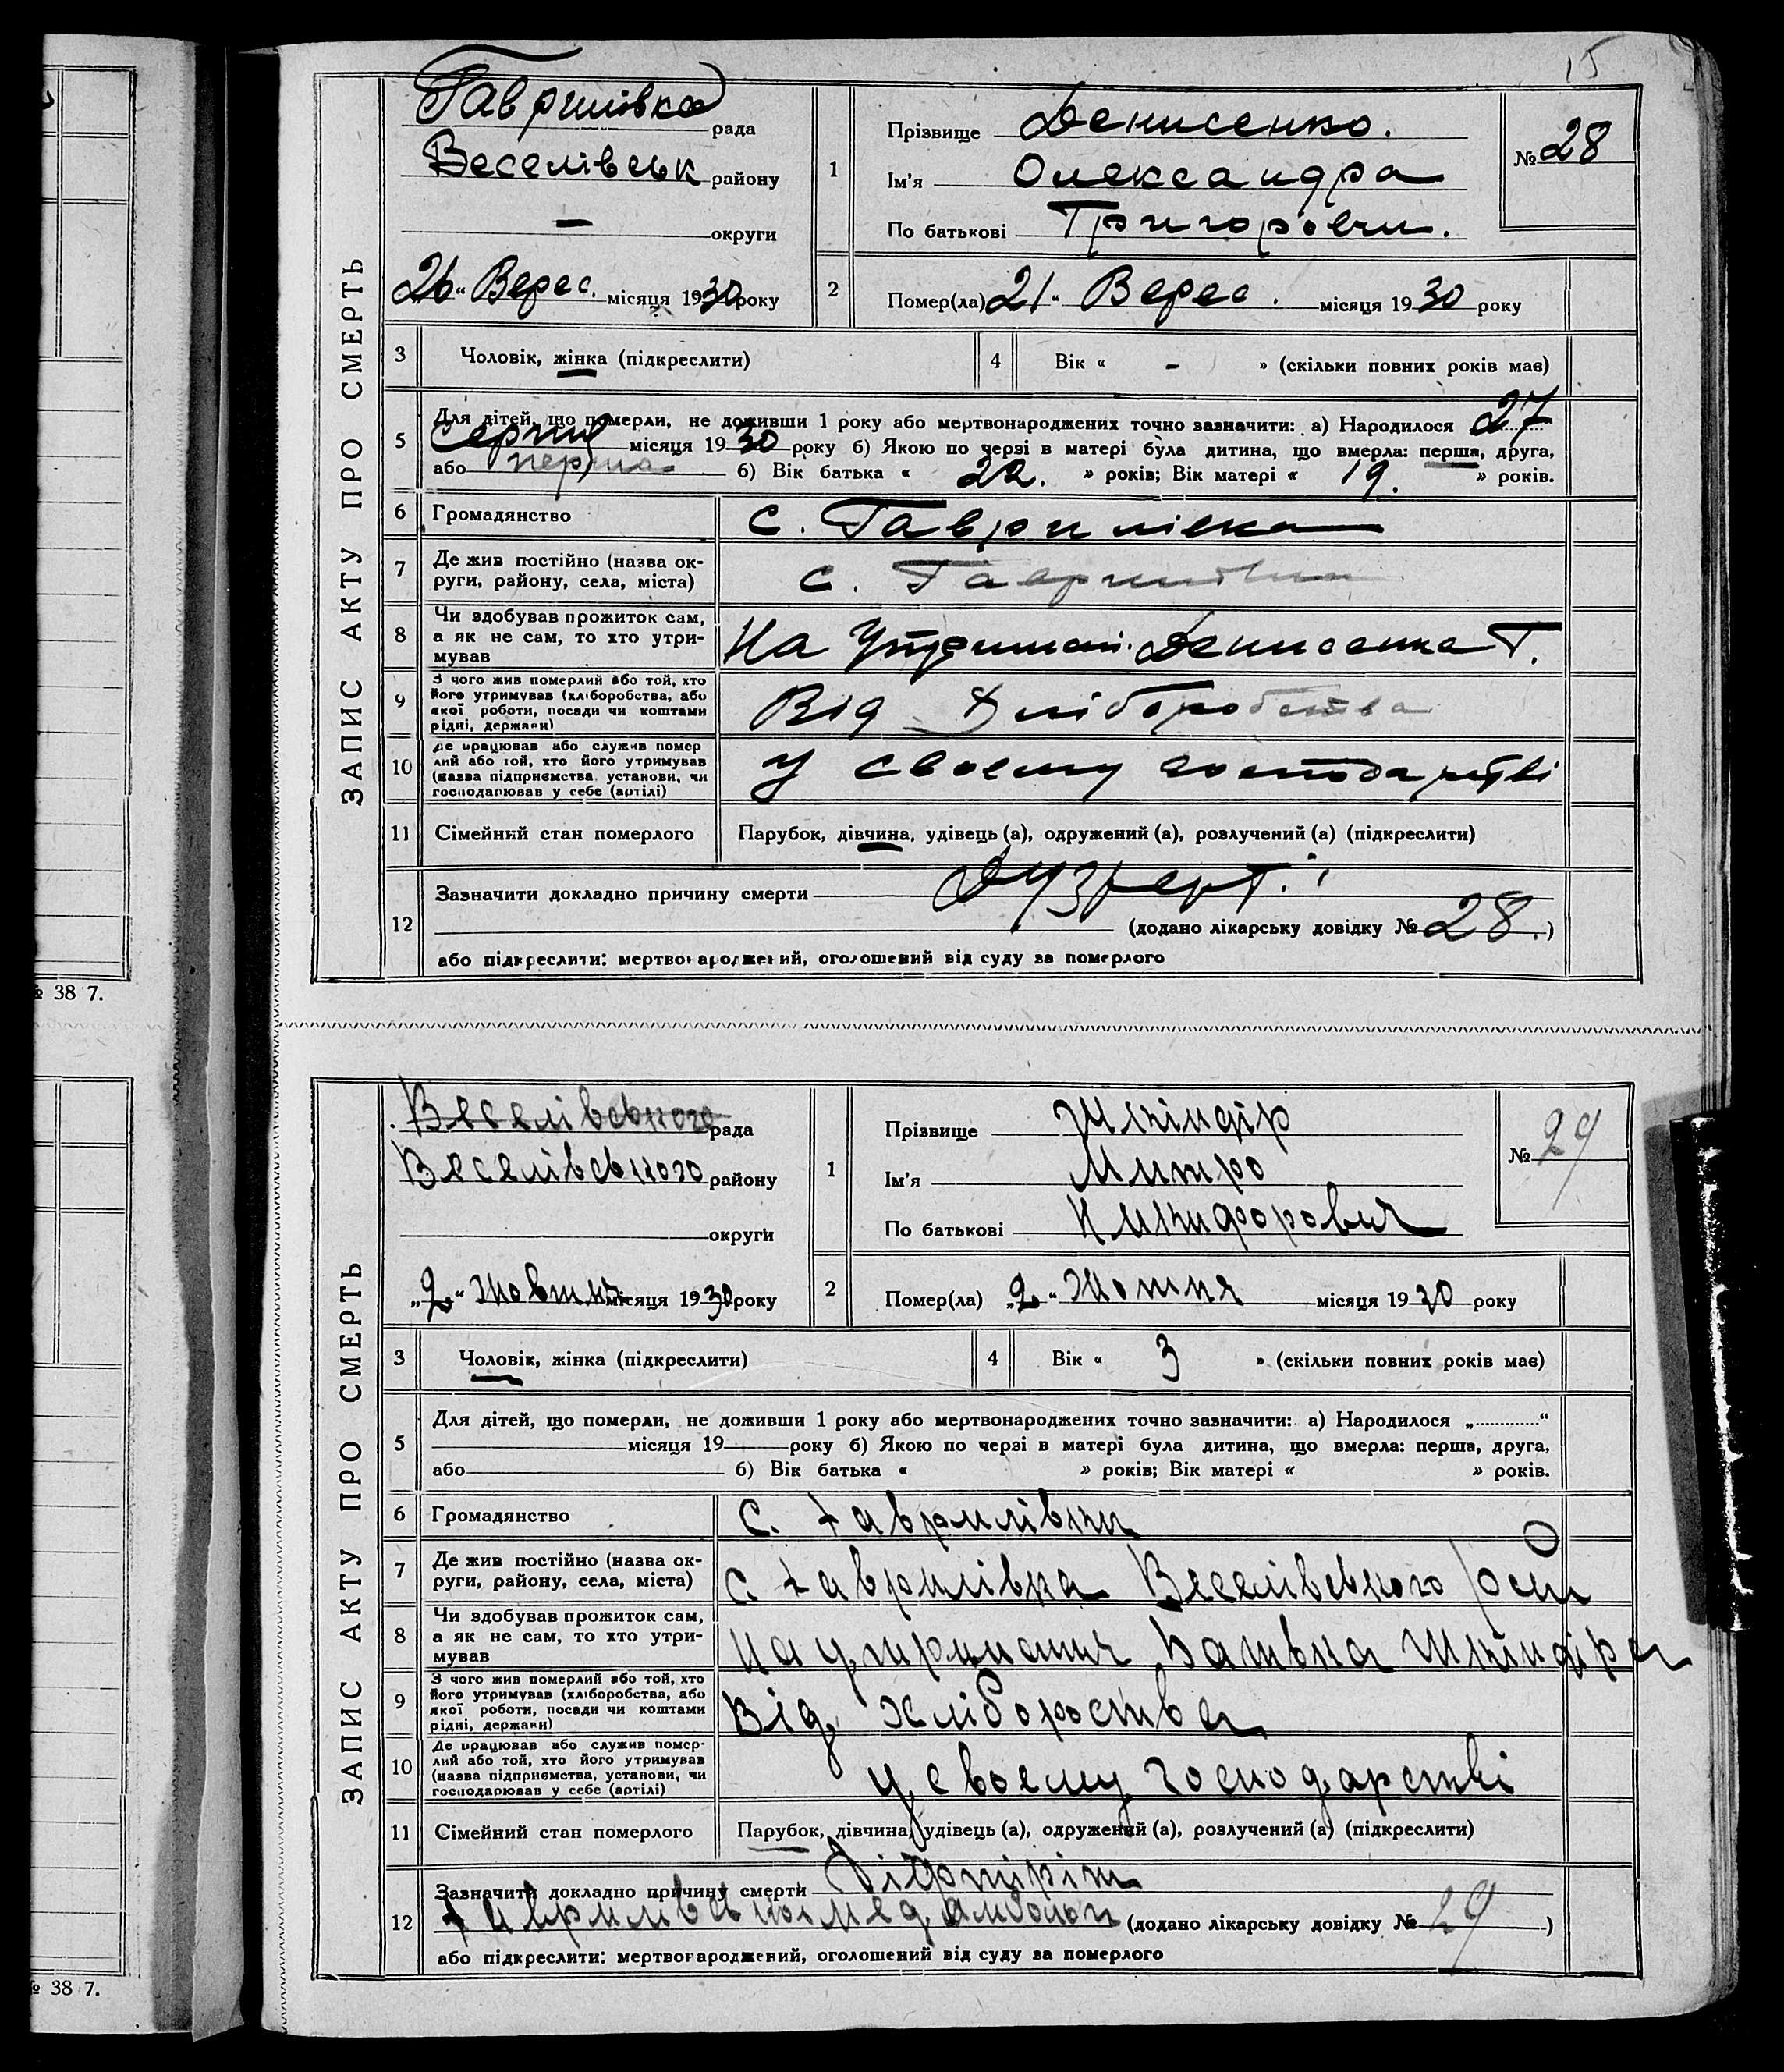 15
ЗАПИС АКТУ ПРО СМЕРТЬ
Гаврилівка рада
Веселівськ району
— округи
26 “ Верес. місяця 1930 року
1 Прізвище Денисенко.
Ім'я Олександра
По батькові Григоровни.
№ 28
2 Помер(ла) 21 “ Верес. місяця 1930 року
3 Чоловік, жінка (підкреслити)
4 Вік « - » (скільки повних років має)
5 Для дітей, що померли, не доживши 1 року або мертвонароджених точно зазначити: а) Народилося 27
Серпня місяця 1930 року б) Якою по черзі в матері була дитина, що вмерла: перша, друга,
або перша б) Вік батька « 22. » років; Вік матері « 19. » років.
6 Громадянство с. Гаврилівка
7 Де жив постійно (назва ок-
руги, району, села, міста) с. Гаврилівка
8 Чи здобував прожиток сам,
а як не сам, то хто утри-
мував На утриман. Денисенка Г.
9 З чого жив померлий або той, хто
його утримував (хліборобства, або
якої роботи, посади чи коштами
рідні, держави) Від Хліборобства
10 Де працював або служив помер
лий або той, хто його утримував
(назва підприємства, установи, чи
господарював у себе (артілі) У своєму господарстві
11 Сімейний стан померлого Парубок, дівчина, удівець (а), одружений (а), розлучений (а) (підкреслити)
12 Зазначити докладно причину смерти
(додано лікарську довідку № 28.)
або підкреслити: мертвонароджений, оголошений від суду за померлого
№ 38 7.
ЗАПИС АКТУ ПРО СМЕРТЬ
Веселівського рада
Веселівського району
округи
„2“ Жовтня місяця 1930 року
1 Прізвище Шкіндір
Ім'я Митро
По батькові Никифорович
№ 29
2 Помер(ла) „2“ Жотня місяця 1930 року
3 Чоловік, жінка (підкреслити)
4 Вік « 3 » (скільки повних років має)
5 Для дітей, що померли, не доживши 1 року або мертвонароджених точно зазначити: а) Народилося „ “
місяця 19 року б) Якою по черзі в матері була дитина, що вмерла: перша, друга,
або б) Вік батька « » років; Вік матері « » років.
6 Громадянство с. Гаврилівки
7 Де жив постійно (назва ок-
руги, району, села, міста) с. Гаврилівка Веселівського
8 Чи здобував прожиток сам,
а як не сам, то хто утри-
мував на утриманні батька Шкіндіра
9 З чого жив померлий або той, хто
його утримував (хліборобства, або
якої роботи, посади чи коштами
рідні, держави) від хліборобства
10 Де працював або служив помер-
лий або той, хто його утримував
(назва підприємства, установи, чи
господарював у себе (артілі) у своєму господарстві
11 Сімейний стан померлого Парубок, дівчина, удівець (а), одружений (а), розлучений (а) (підкреслити)
12 Зазначити докладно причину смерти Дифтіріт
(додано лікарську довідку № 29)
або підкреслити: мертвонароджений, оголошений від суду за померлого
№ 38 7.